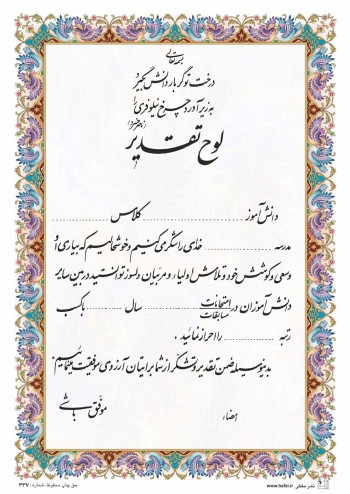 بسمه تعالی
درخت تو گر بار دانش بگیرد
به زیر آوری چرخ نیلوفری را
(ناصر خسرو)
لوح تقدیر
دانش آموز ........ کلاس ........
مدرسه ........ خدای را شکر می کنیم و خوشحالیم که بیاری او
و سعی و کوشش خود و تلاش اولیاء و مربیان دلسوز توانستید در بین سایر
دانش آموزان در امتحانات مسابقات ........ سال ........ با کسب
رتبه ........ را احراز نمائید.
بدینوسیله ضمن تقدیر و تشکر از شما برایتان آرزوی موفقیت می نمائیم.
موفق باشی
امضاء
حق چاپ محفوظ. شماره: ۳۳۷
www.hefzi.ir